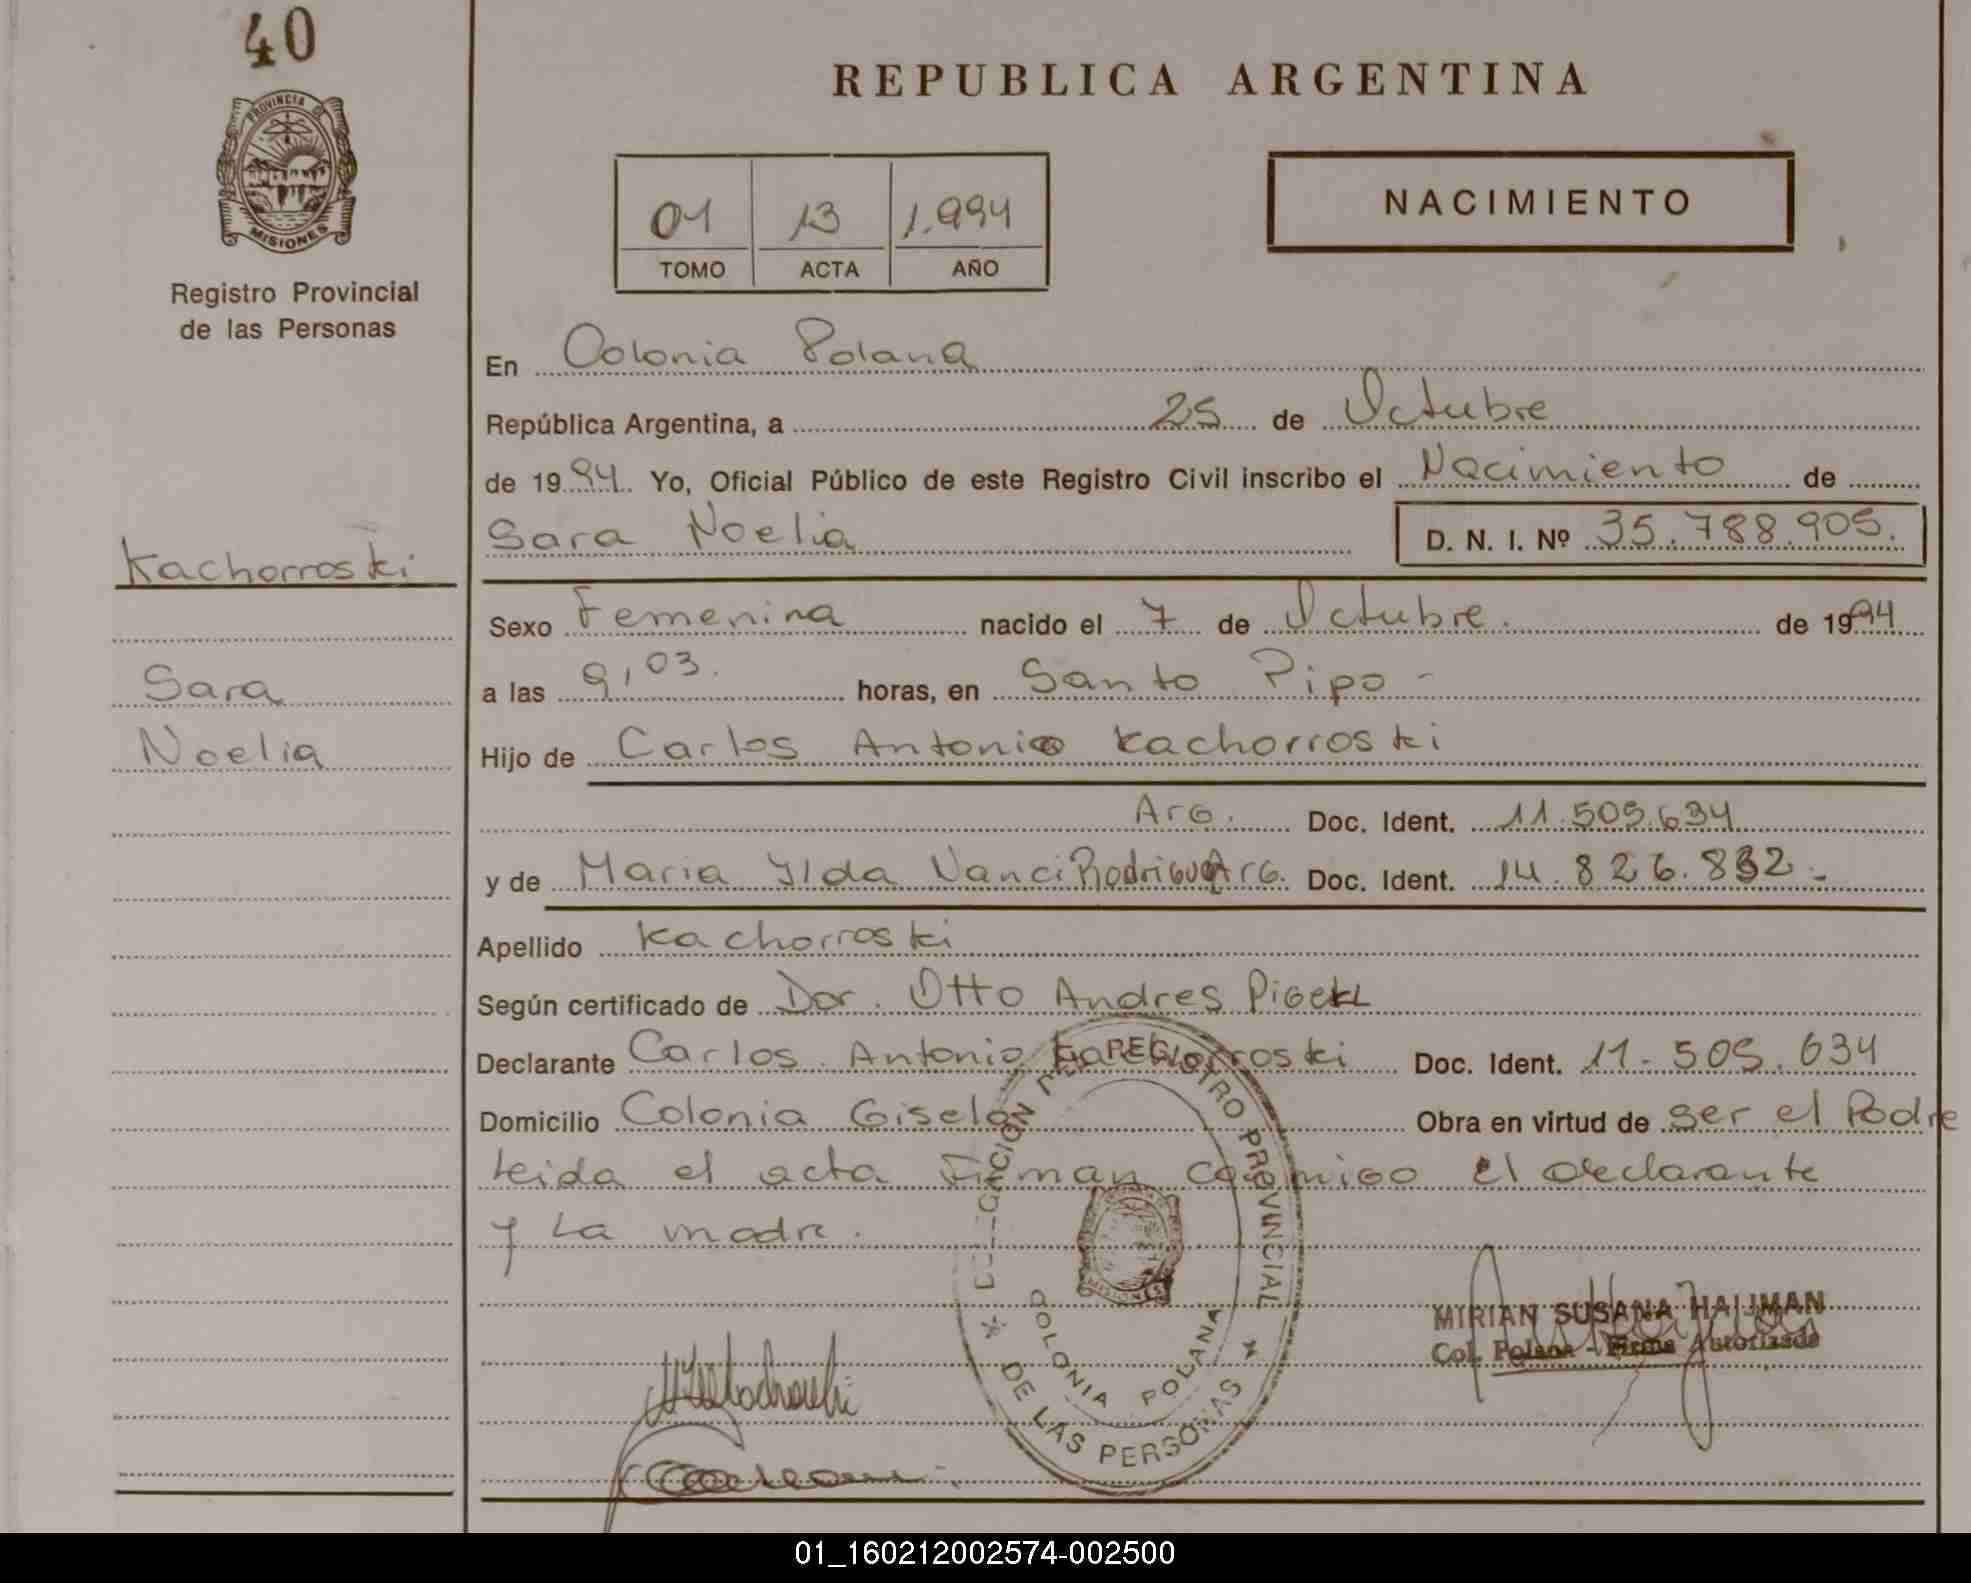 40
PROVINCIA DE
MISIONES
Registro Provincial
de las Personas
REPUBLICA ARGENTINA
01 13 1.994
TOMO ACTA AÑO
NACIMIENTO
En Colonia Polana
República Argentina, a 25 de Octubre
de 1994. Yo, Oficial Público de este Registro Civil inscribo el Nacimiento de
Sara Noelia D. N. I. Nº 35.788.905.
Kachorroski
Sexo Femenina nacido el 7 de Octubre. de 1994
Sara
a las 9,03. horas, en Santo Pipo -
Noelia
Hijo de Carlos Antonio Kachorroski
Arg. Doc. Ident. 11.505.634
y de Maria Ylda Nanci Rodriguez Arg. Doc. Ident. 14.826.832.-
Apellido Kachorroski
Según certificado de Dor. Otto Andres
Declarante Carlos Antonio Kachorroski Doc. Ident. 11.505.634
Domicilio Colonia Gisela Obra en virtud de ser el Padre
leida el acta Firman conmigo el declarante
y La madre.
DELEGACION DEL REGISTRO PROVINCIAL
DE LAS PERSONAS
COLONIA POLANA
MISIONES
MIRIAN SUSANA HAUMAN
Col. Polana - Firma Autorizada
01_160212002574-002500